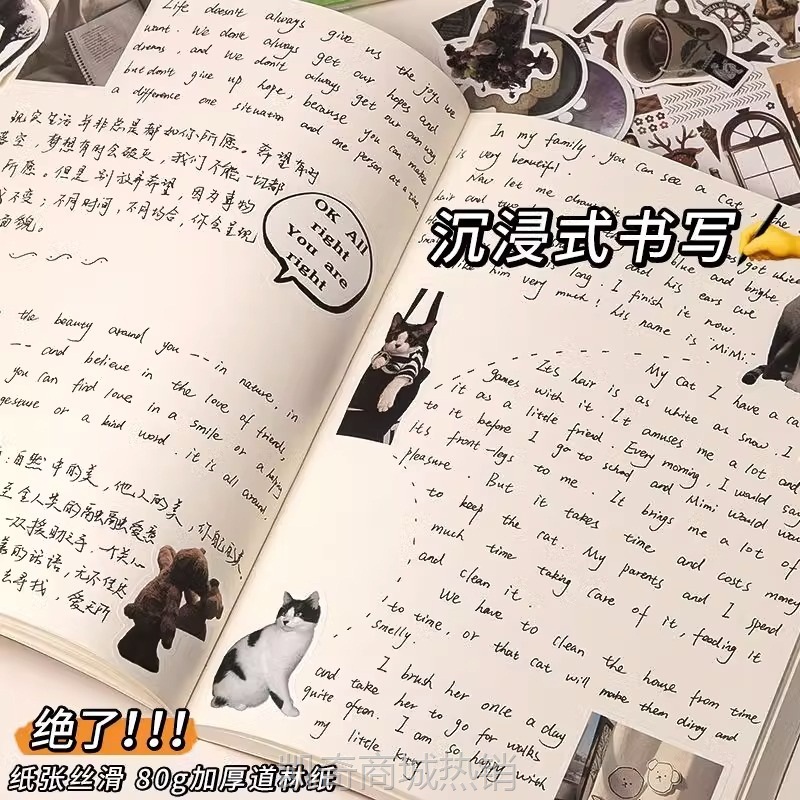 Life doesn't always give us the joys we
want. We don't always get our hopes and
dreams, and we don't always get our own way,
but don't give up hope, because you can make
a difference one situation and one person at a time
现实生活并非总是都如你所愿。希望有时
落空，梦想有时会破灭，我们不能一切都
所愿。但是别放弃希望，因为事物
不变；不同时间，不同场合，你会呈现
面貌。
OK All
right
You are
right
the beauty around you -- in nature, in
-- and believe in the love of friends,
you can find love in a smile or a helping
gesture or a kind word. it is all around,
：自然中的美，他人的美，你能
至全人类的融融爱意
一双援助之手、一个关心
的话语，无不住
去寻找，爱无所
In my family. you can see a cat, the
is very beautiful.
Now let me
hair and
blue and bright
and his ears are
long. I finish it now.
like him very much! his name is "MiMi."
沉浸式书写
My Cat I have a cat
Its hair is as white as snow. I
games with it. It amuses me a lot and
it as a little friend. Every morning I would say
to it before I go to school and Mimi would
its front-legs to me. It brings me a lot of
pleasure. But it takes time and costs money
to keep the cat. My parents and I spend
much time taking care of it, feeding it
and clean it.
We have to clean the house from time
to time, or that cat will make them dirty and
smelly.
I brush her once a day
and take her to go for walks
quite often. I am so happy with
my little
绝了!!!
纸张丝滑 80g加厚道林纸
凯奇商城热销